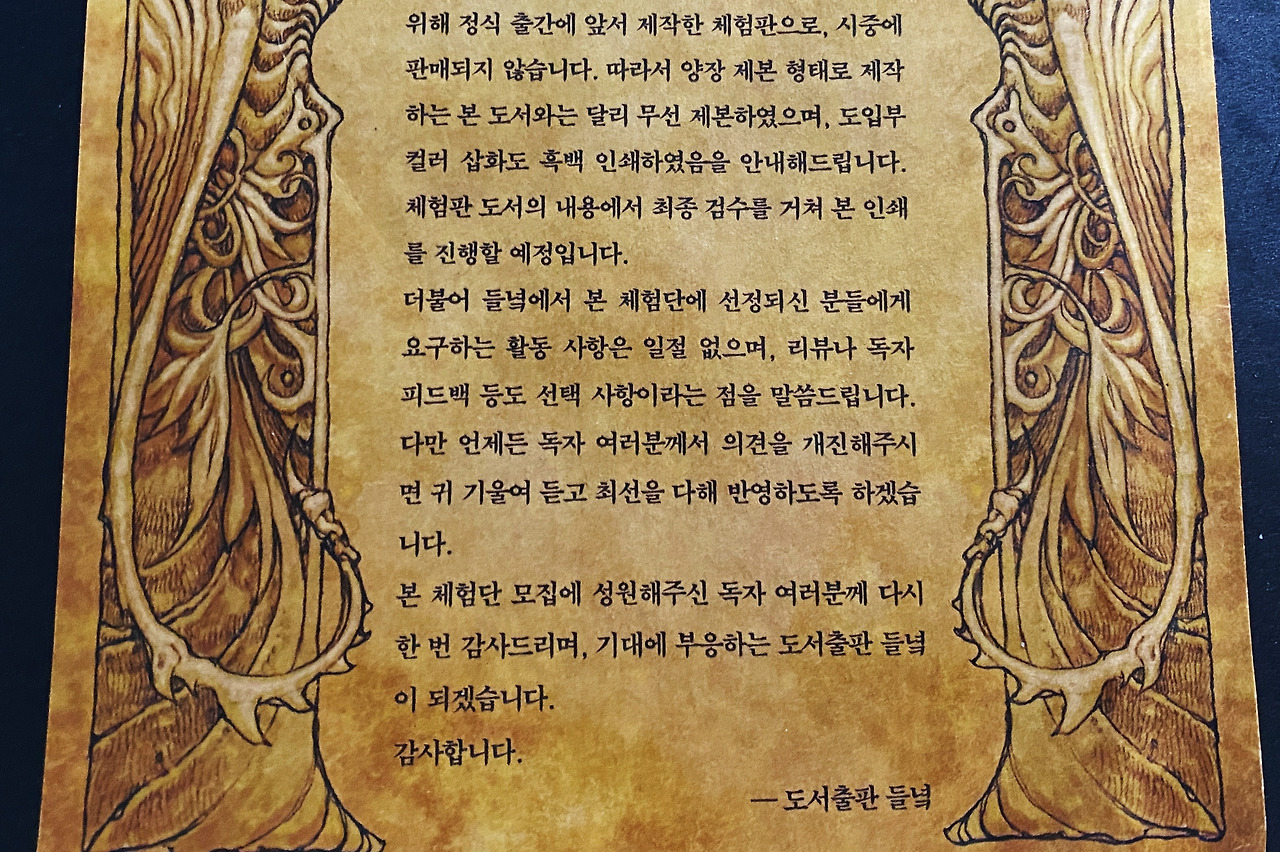 위해 정식 출간에 앞서 제작한 체험판으로, 시중에
판매되지 않습니다. 따라서 양장 제본 형태로 제작
하는 본 도서와는 달리 무선 제본하였으며, 도입부
컬러 삽화도 흑백 인쇄하였음을 안내해드립니다.
체험판 도서의 내용에서 최종 검수를 거쳐 본 인쇄
를 진행할 예정입니다.
더불어 들녘에서 본 체험단에 선정되신 분들에게
요구하는 활동 사항은 일절 없으며, 리뷰나 독자
피드백 등도 선택 사항이라는 점을 말씀드립니다.
다만 언제든 독자 여러분께서 의견을 개진해주시
면 귀 기울여 듣고 최선을 다해 반영하도록 하겠습
니다.
본 체험단 모집에 성원해주신 독자 여러분께 다시
한 번 감사드리며, 기대에 부응하는 도서출판 들녘
이 되겠습니다.
감사합니다.
— 도서출판 들녘